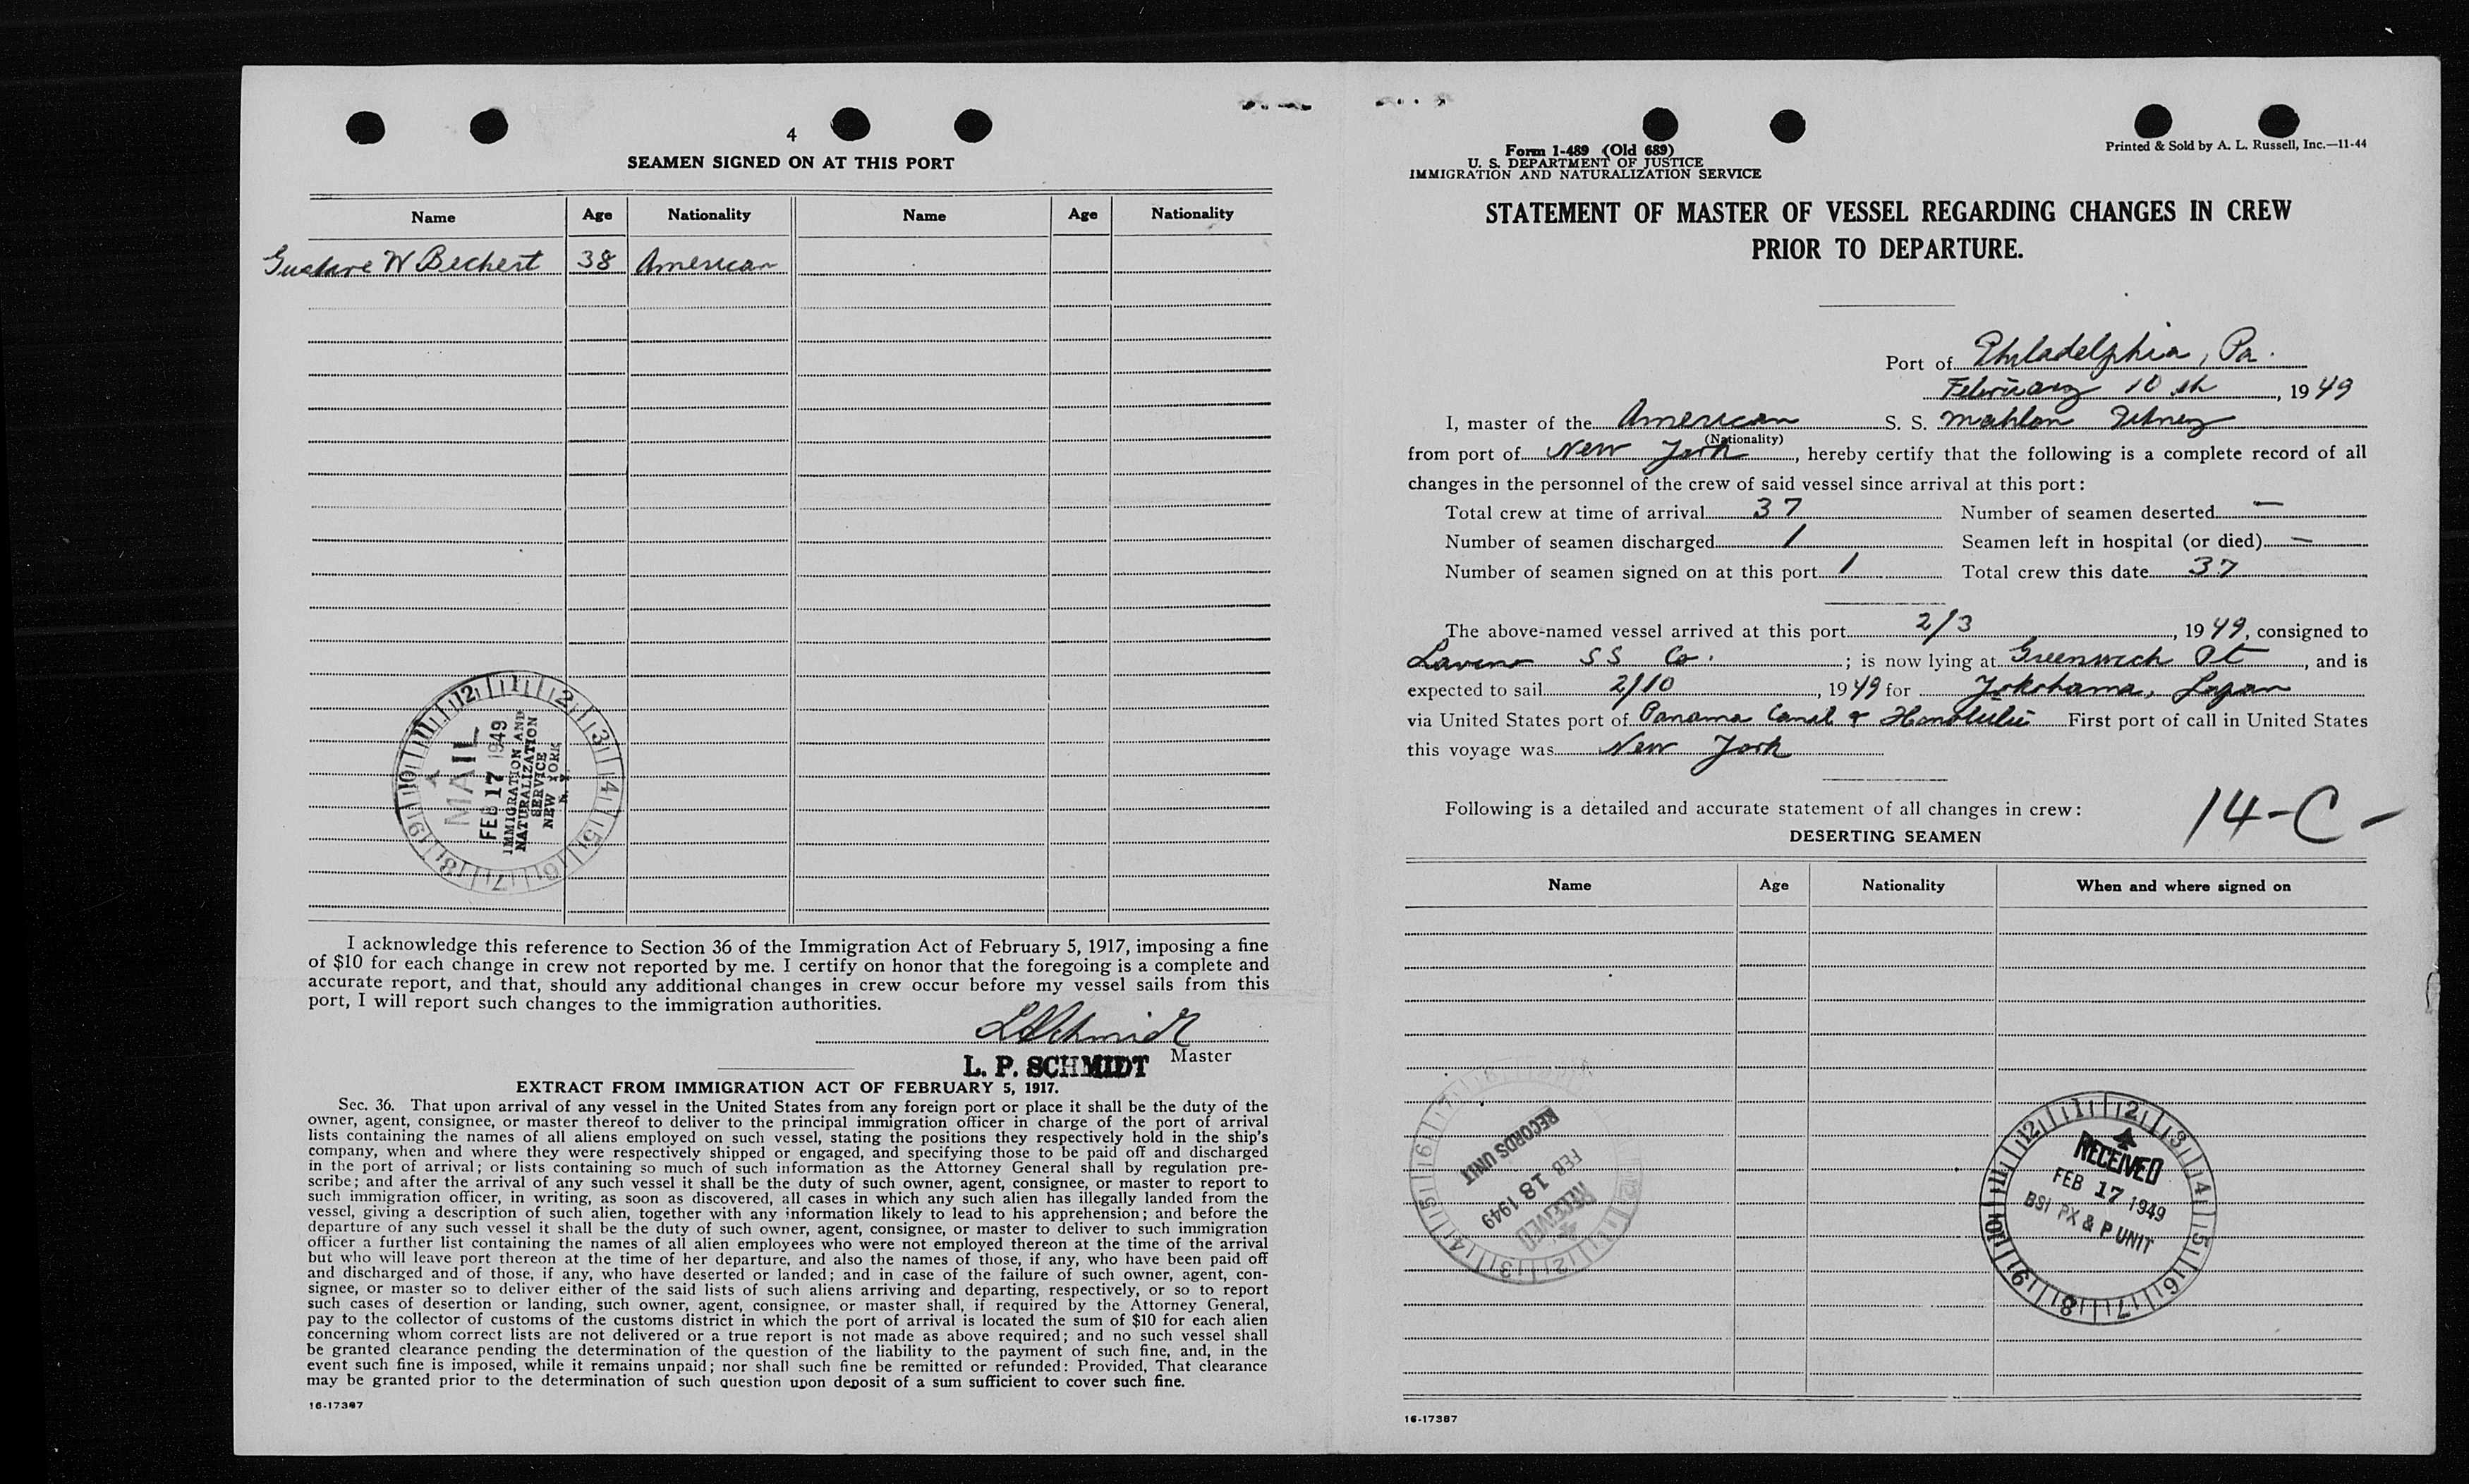 4
SEAMEN SIGNED ON AT THIS PORT
Name Age Nationality Name Age Nationality
Gustave W Bechert 38 American
MAIL
FEB 17 1949
IMMIGRATION AND
NATURALIZATION
SERVICE
NEW YORK
N. Y.
I acknowledge this reference to Section 36 of the Immigration Act of February 5, 1917, imposing a fine
of $10 for each change in crew not reported by me. I certify on honor that the foregoing is a complete and
accurate report, and that, should any additional changes in crew occur before my vessel sails from this
port, I will report such changes to the immigration authorities.
L P Schmidt
Master
L. P. SCHMIDT
EXTRACT FROM IMMIGRATION ACT OF FEBRUARY 5, 1917.
Sec. 36. That upon arrival of any vessel in the United States from any foreign port or place it shall be the duty of the
owner, agent, consignee, or master thereof to deliver to the principal immigration officer in charge of the port of arrival
lists containing the names of all aliens employed on such vessel, stating the positions they respectively hold in the ship's
company, when and where they were respectively shipped or engaged, and specifying those to be paid off and discharged
in the port of arrival; or lists containing so much of such information as the Attorney General shall by regulation pre-
scribe; and after the arrival of any such vessel it shall be the duty of such owner, agent, consignee, or master to report to
such immigration officer, in writing, as soon as discovered, all cases in which any such alien has illegally landed from the
vessel, giving a description of such alien, together with any information likely to lead to his apprehension; and before the
departure of any such vessel it shall be the duty of such owner, agent, consignee, or master to deliver to such immigration
officer a further list containing the names of all alien employees who were not employed thereon at the time of the arrival
but who will leave port thereon at the time of her departure, and also the names of those, if any, who have been paid off
and discharged and of those, if any, who have deserted or landed; and in case of the failure of such owner, agent, con-
signee, or master so to deliver either of the said lists of such aliens arriving and departing, respectively, or so to report
such cases of desertion or landing, such owner, agent, consignee, or master shall, if required by the Attorney General,
pay to the collector of customs of the customs district in which the port of arrival is located the sum of $10 for each alien
concerning whom correct lists are not delivered or a true report is not made as above required; and no such vessel shall
be granted clearance pending the determination of the question of the liability to the payment of such fine, and, in the
event such fine is imposed, while it remains unpaid; nor shall such fine be remitted or refunded: Provided, That clearance
may be granted prior to the determination of such question upon deposit of a sum sufficient to cover such fine.
16-17387
Form 1-489 (Old 689)
U. S. DEPARTMENT OF JUSTICE
IMMIGRATION AND NATURALIZATION SERVICE
Printed & Sold by A. L. Russell, Inc.—11-44
STATEMENT OF MASTER OF VESSEL REGARDING CHANGES IN CREW
PRIOR TO DEPARTURE.
Port of Philadelphia, Pa.
February 10 th, 1949
I, master of the American S. S. Mahlon
(Nationality)
from port of New York, hereby certify that the following is a complete record of all
changes in the personnel of the crew of said vessel since arrival at this port:
Total crew at time of arrival 37 Number of seamen deserted —
Number of seamen discharged 1 Seamen left in hospital (or died) —
Number of seamen signed on at this port 1 Total crew this date 37
The above-named vessel arrived at this port 2/3, 1949, consigned to
Lavino SS Co.; is now lying at Greenwich Pt, and is
expected to sail 2/10, 1949 for Yokohama, Japan
via United States port of Panama Canal & Honolulu First port of call in United States
this voyage was New York
Following is a detailed and accurate statement of all changes in crew:
14-C-
DESERTING SEAMEN
Name Age Nationality When and where signed on
RECEIVED
FEB 18 1949
RECORDS UNIT
RECEIVED
FEB 17 1949
BSI PX & P UNIT
16-17387